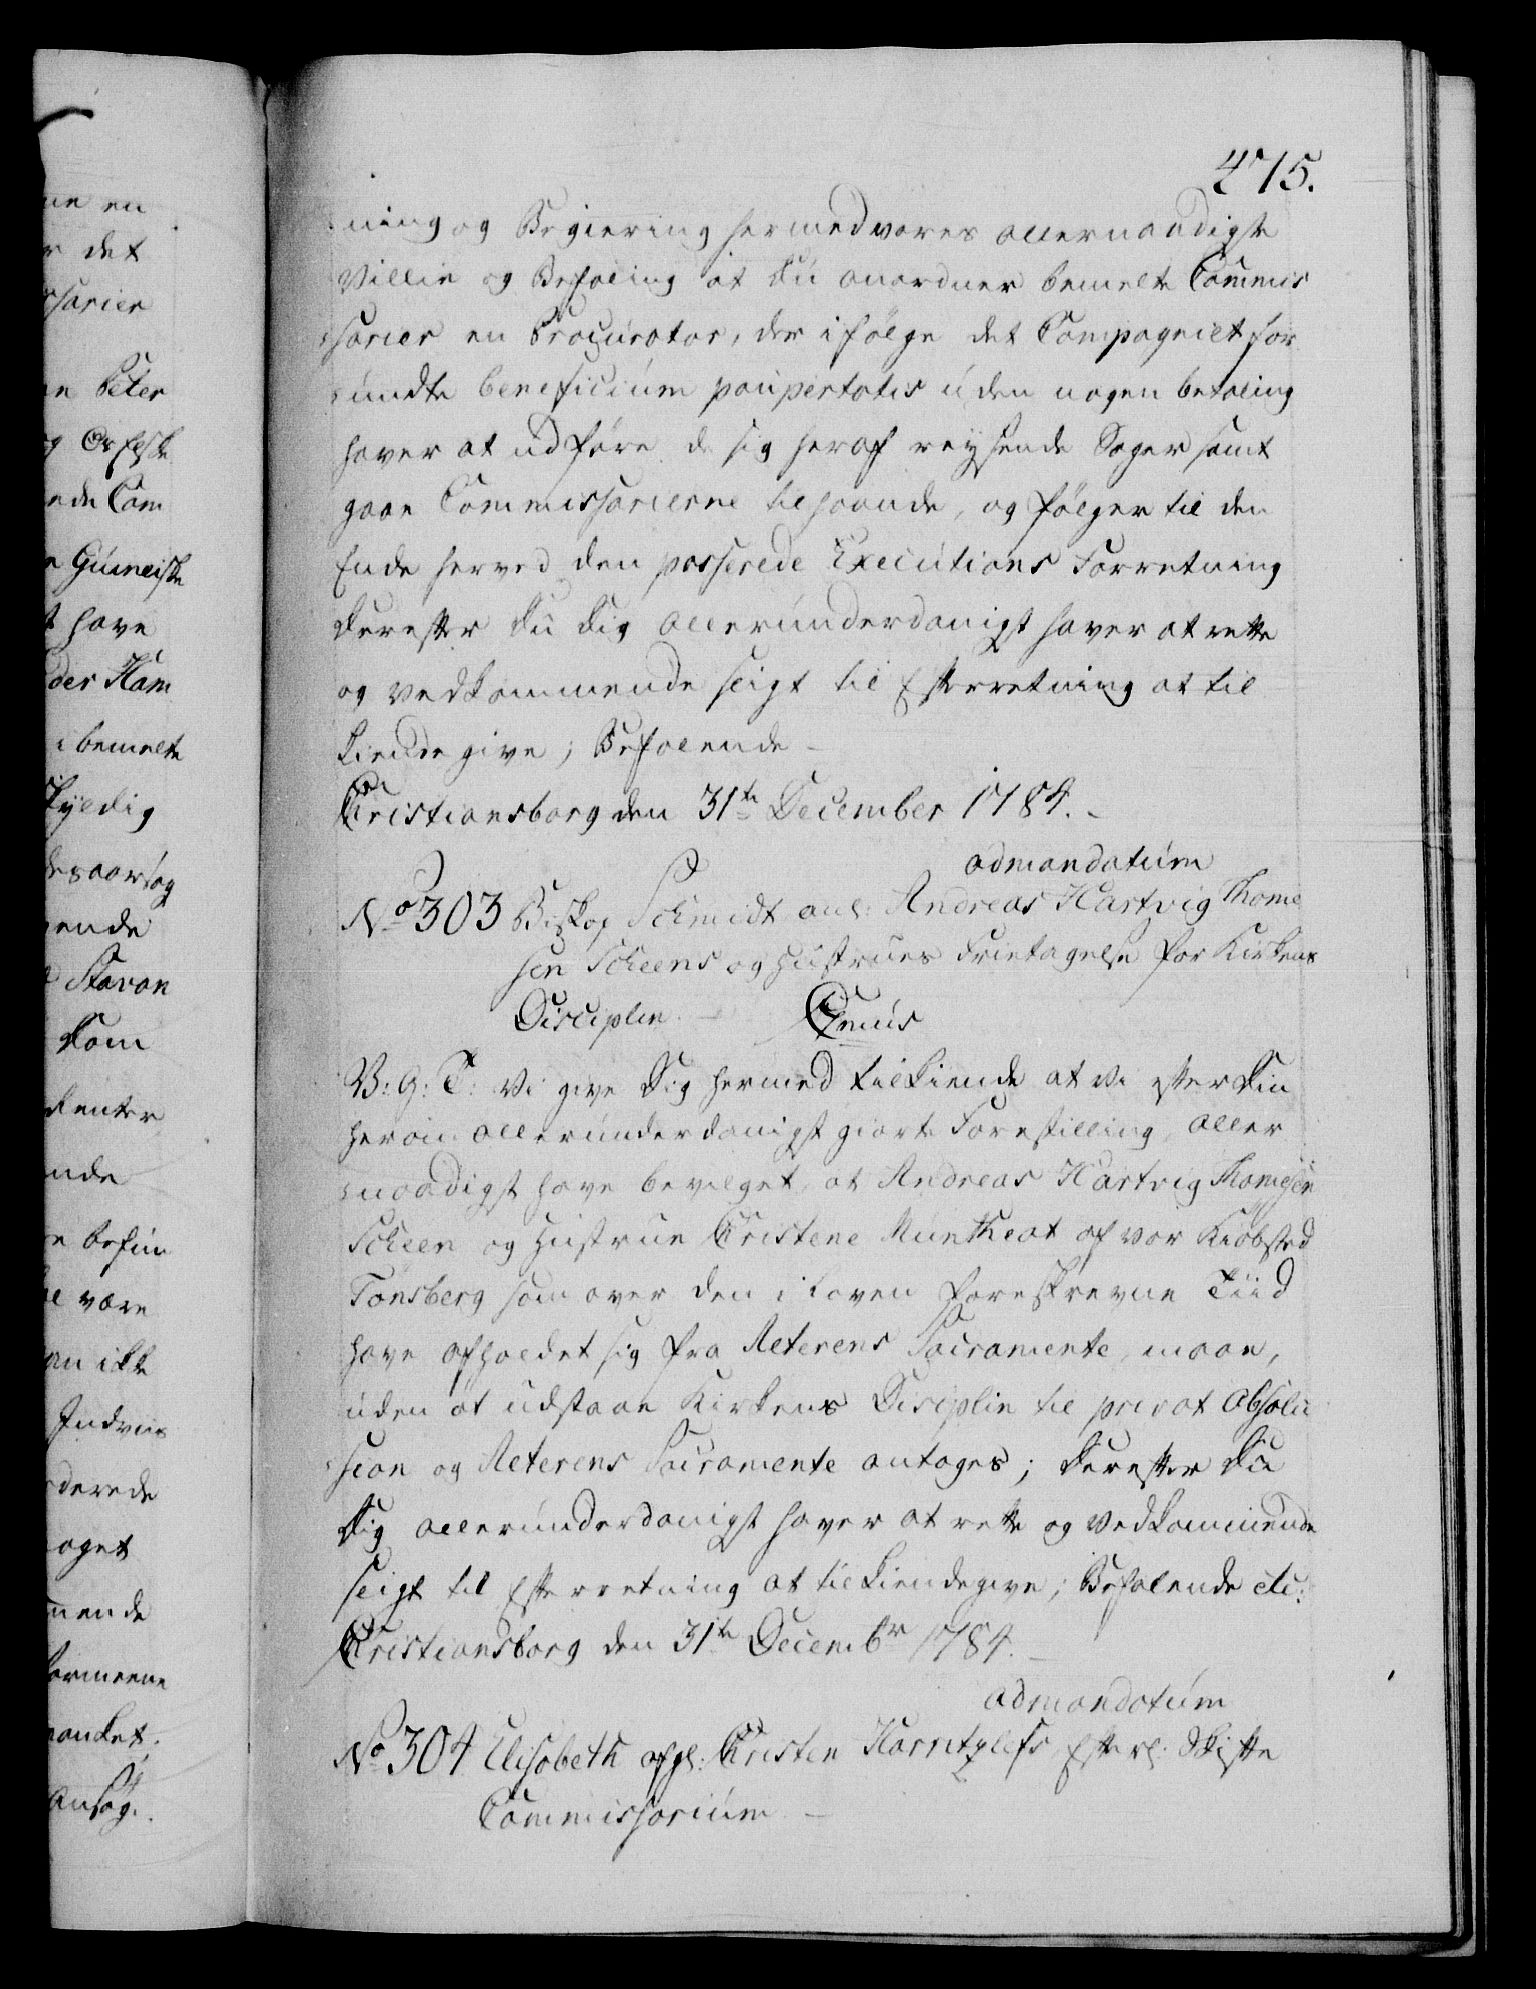 475.
ning og Begiering hermed vores allernaadigste
Villie og Befaling at Du anordner bemelte Commis
sarier en Procurator, der ifölge det Compagniet for
undte beneficium paupertatis uden nogen betaling
haver at udföre de sig heraf reysende Sager samt
gaae Commissarierne tilhaande, og fölger til den
Ende herved den passerede Executions Forretning
Derefter Du Dig allerunderdanigst haver at rette
og vedkommende sligt til Efterretning at til
kiende give; Befalende
Christiansborg den 31te December 1784.
admandatum
No 303 Biskop Schmidt anl: Andreas Hartvig Thome
sen Scheens og Hustrues Frietagelse for Kirkens
Disciplin
V: G: T: Vi give Dig hermed tilkiende at Vi efter Din
herom allerunderdanigst giorte Forestilling, aller
naadigst have bevilget, at Andreas Hartvig Thomesen
Scheen og Hustrue Christene Muntheat af vor Kiöbsted
Tönsberg som over den i Loven foreskrevne Tiid
have afholdet sig fra Alterens Sacramente, maae,
uden at udstaae Kirkens Disciplin til privat Absolu
sion og Alterens Sacramente antages; Derefter Du
Dig allerunderdanigst haver at rette og Vedkommende
sligt til Efterretning at tilkiendegive; Befalende etc:
Christiansborg den 31te Decembr 1784.
admandatum
No 304 Elisabeth afgl: Christen Efterl. Skifte
Commissorium
ne en
det
sarier
Peter
Com
Guineiske
have
der Kam
bemelte
skyldig
gende
Stavan
Kom
Renter
nde
befun
være
ikke
derede
oget
mende
Ansög.